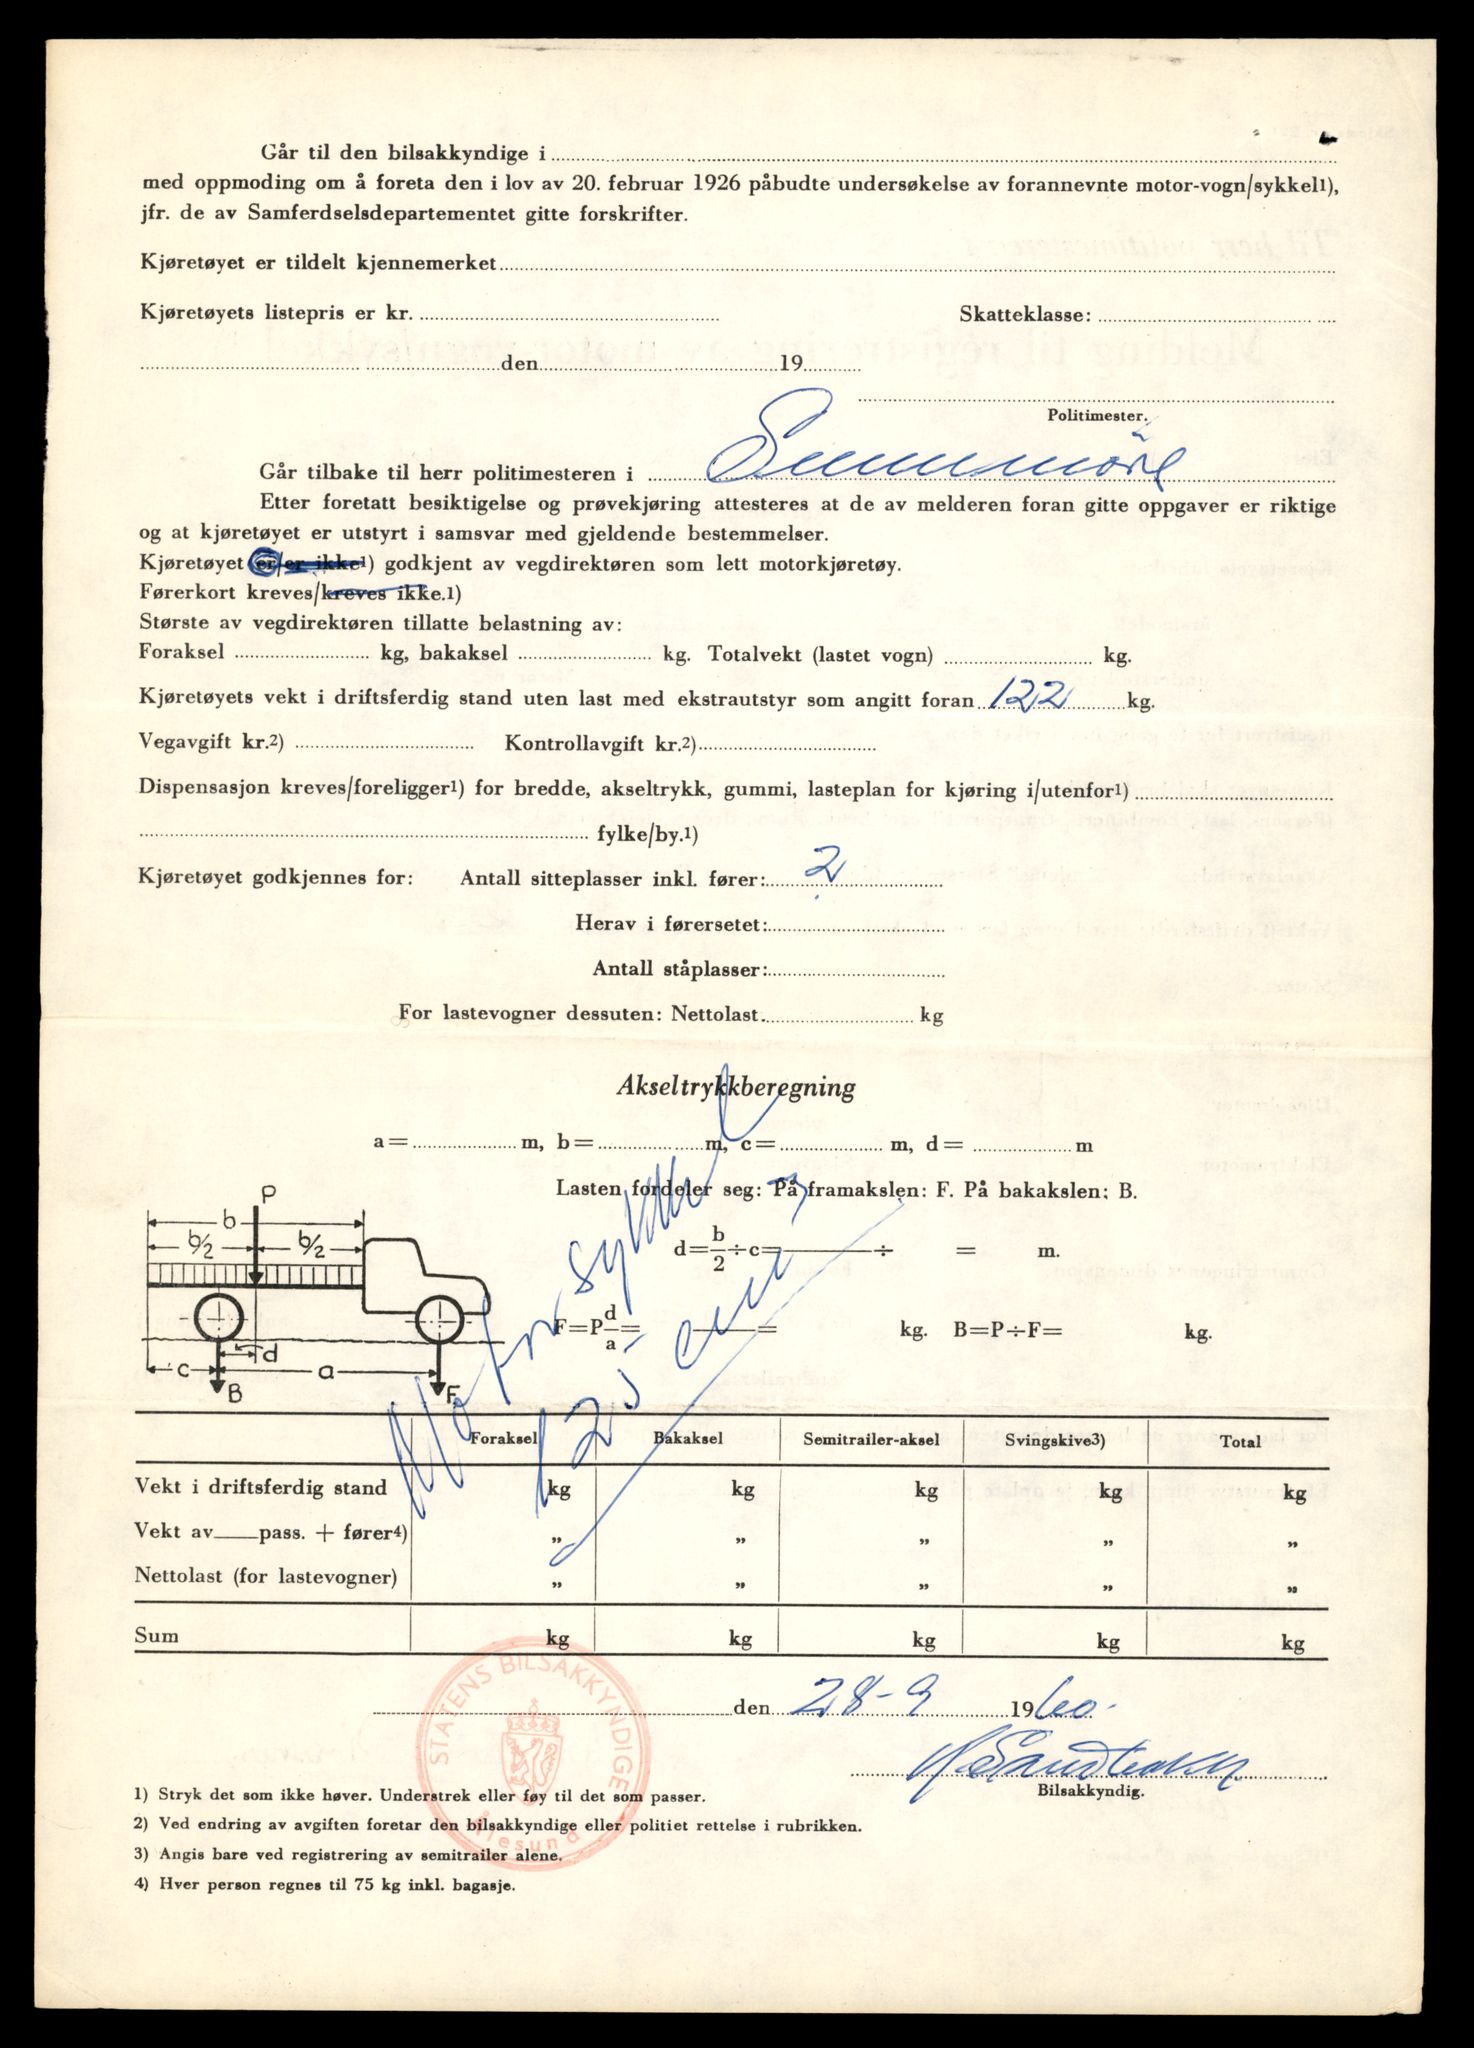 Går til den bilsakkyndige i
med oppmoding om å foreta den i lov av 20. februar 1926 påbudte undersøkelse av forannevnte motor-vogn/sykkel1),
jfr. de av Samferdselsdepartementet gitte forskrifter.
Kjøretøyet er tildelt kjennemerket
Kjøretøyets listepris er kr. Skatteklasse:
den 19
Politimester.
Går tilbake til herr politimesteren i Sunnmöre
Etter foretatt besiktigelse og prøvekjøring attesteres at de av melderen foran gitte oppgaver er riktige
og at kjøretøyet er utstyrt i samsvar med gjeldende bestemmelser.
Kjøretøyet er/er ikke1) godkjent av vegdirektøren som lett motorkjøretøy.
Førerkort kreves/kreves ikke.1)
Største av vegdirektøren tillatte belastning av:
Foraksel kg, bakaksel kg. Totalvekt (lastet vogn) kg.
Kjøretøyets vekt i driftsferdig stand uten last med ekstrautstyr som angitt foran 122 kg.
Vegavgift kr.2) Kontrollavgift kr.2)
Dispensasjon kreves/foreligger1) for bredde, akseltrykk, gummi, lasteplan for kjøring i/utenfor1)
fylke/by.1)
Kjøretøyet godkjennes for: Antall sitteplasser inkl. fører: 2
Herav i førersetet:
Antall ståplasser:
For lastevogner dessuten: Nettolast kg
Akseltrykkberegning
a= m, b= m, c= m, d= m
Lasten fordeler seg: På framakslen: F. På bakakslen: B.
d=b/2÷c= ÷ = m.
F=P d/a= = kg. B=P÷F= kg.
P
b
b/2 b/2
c d a
B F
Motorsykkel
125 cm3
Foraksel Bakaksel Semitrailer-aksel Svingskive3) Total
Vekt i driftsferdig stand kg kg kg kg kg
Vekt av pass. + fører4) „ „ „ „ „
Nettolast (for lastevogner) „ „ „ „ „
Sum kg kg kg kg kg
STATENS BILSAKKYNDIGE
Ålesund
den 28-9 1960.
Bilsakkyndig.
1) Stryk det som ikke høver. Understrek eller føy til det som passer.
2) Ved endring av avgiften foretar den bilsakkyndige eller politiet rettelse i rubrikken.
3) Angis bare ved registrering av semitrailer alene.
4) Hver person regnes til 75 kg inkl. bagasje.